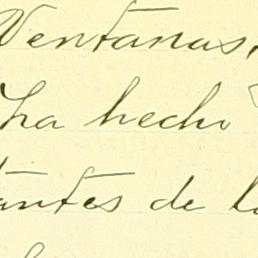 Ventanas,
ha hecho
antes de l